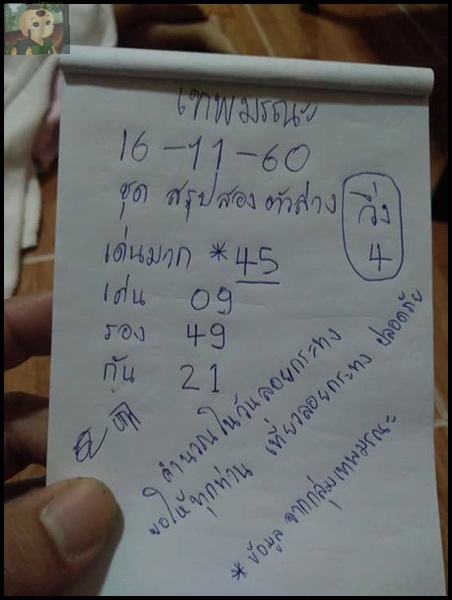 เทพมรณะ
16-11-60
ชุด สรุปสองตัวล่าง
วิ่ง
4
เด่นมาก *45
เด่น 09
รอง 49
กัน 21
คำนวณในวันลอยกระทง
ขอให้ทุกท่าน เที่ยวลอยกระทง ปลอดภัย
* ข้อมูล จากกลุ่มเทพมรณะ